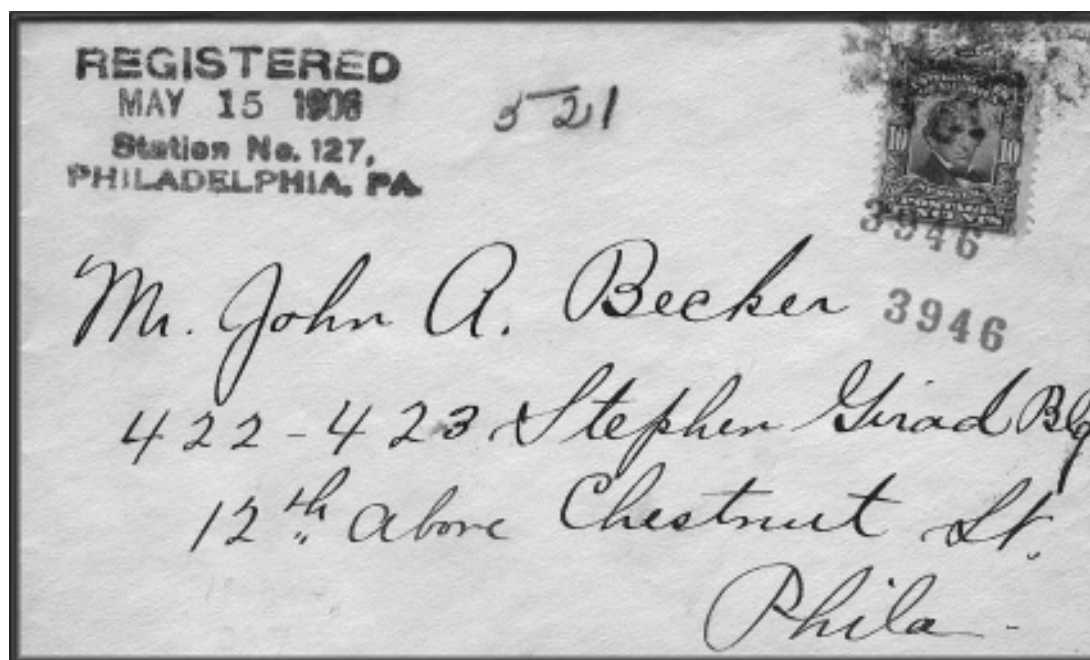 REGISTERED
MAY 15 1906
Station No. 127,
PHILADELPHIA, PA.
521
10 10
3946
3946
Mr. John A. Becker
422-423 Stephen Girad Blg
12th above Chestnut St.
Phila-